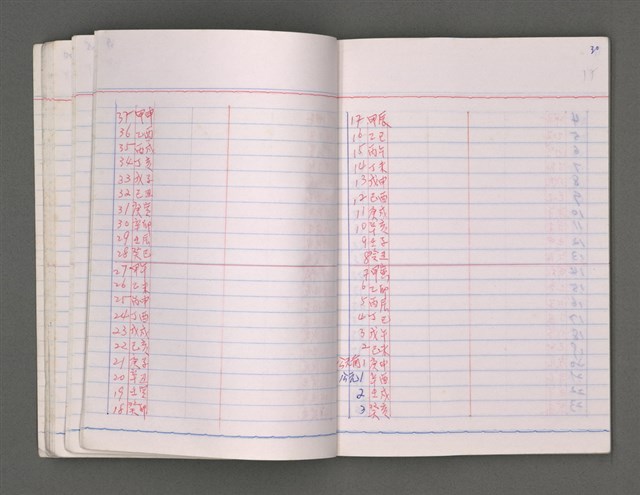 37 甲申
36 乙酉
35 丙戌
34 丁亥
33 戊子
32 己丑
31 庚寅
30 辛卯
29 壬辰
28 癸巳
27 甲午
26 乙未
25 丙申
24 丁酉
23 戊戌
22 己亥
21 庚子
20 辛丑
19 壬寅
18 癸卯
30
17 甲辰
16 乙巳
15 丙午
14 丁未
13 戊申
12 己酉
11 庚戌
10 辛亥
9 壬子
8 癸丑
7 甲寅
6 乙卯
5 丙辰
4 丁巳
3 戊午
2 己未
公元前1 庚申
公元1 辛酉
2 壬戌
3 癸亥